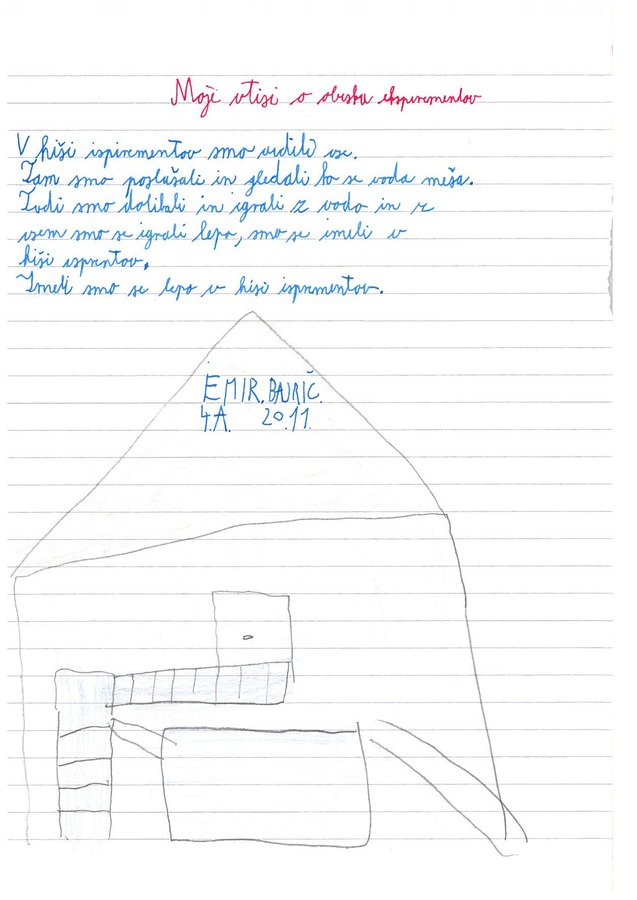 Moji vtisi o obisku ekspirementov
V hiši ispirementov smo vidili vse.
Tam smo poslušali in gledali ko se voda meša.
Tudi smo dotikali in igrali z vodo in z
vsem smo se igrali lepo, smo se imeli v
hiši isprentov.
Imeli smo se lepo v hiši isprementov.
EMIR. BAJRIĆ.
4.A. 20.11.